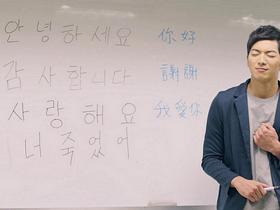 안녕하세요 你好
감사합니다 謝謝
사랑해요 我愛你
너 죽었어